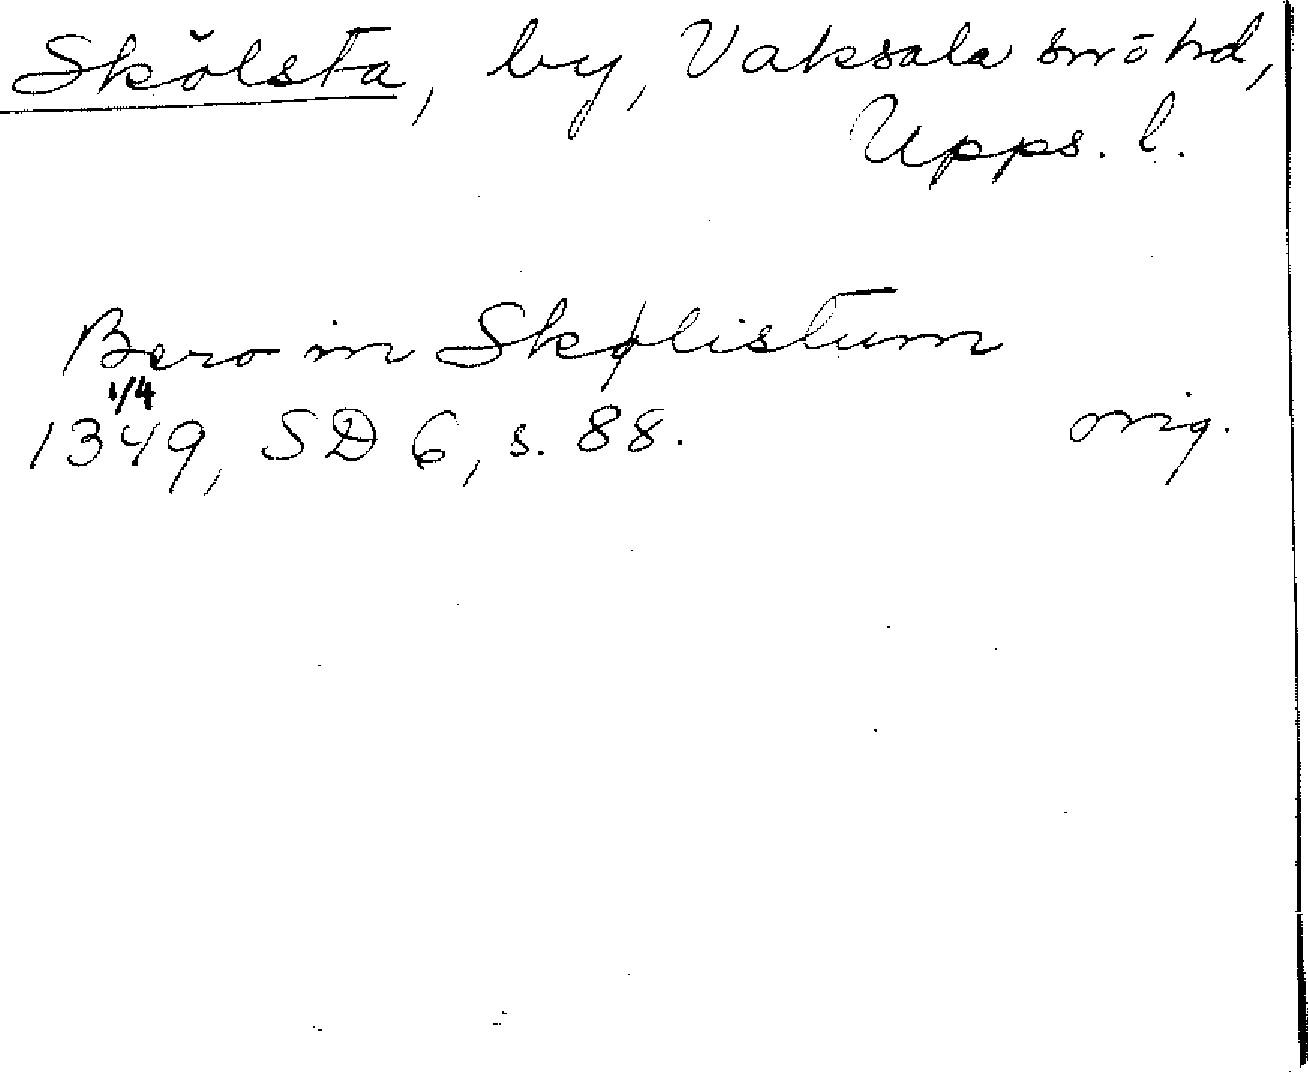 Skölsta, by, Vaksala sn o hd,
Upps. l.
Bero in Skølistum
1/4
1349, SD 6, s. 88. orig.